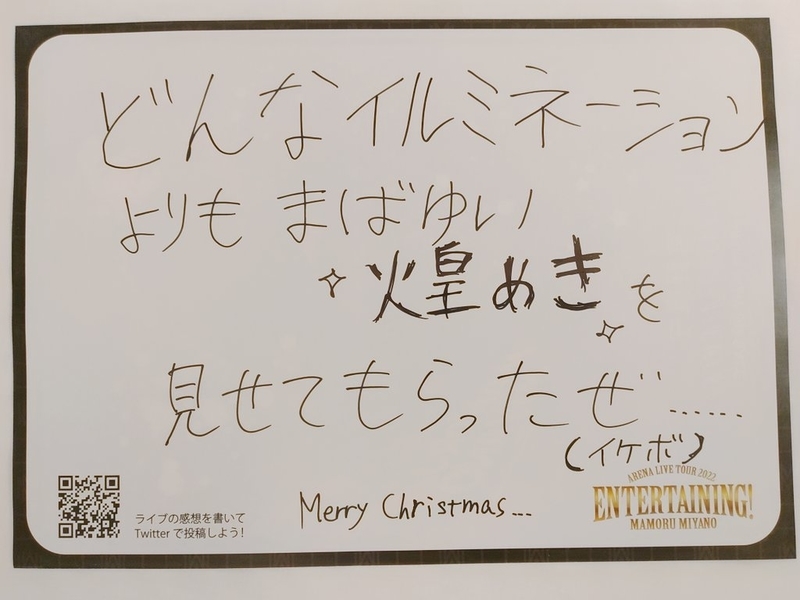 どんなイルミネーション
よりも まばゆい
煌めきを
見せてもらったぜ……
(イケボ)
Merry Christmas...
ライブの感想を書いて
Twitterで投稿しよう!
ARENA LIVE TOUR 2022
ENTERTAINING!
MAMORU MIYANO